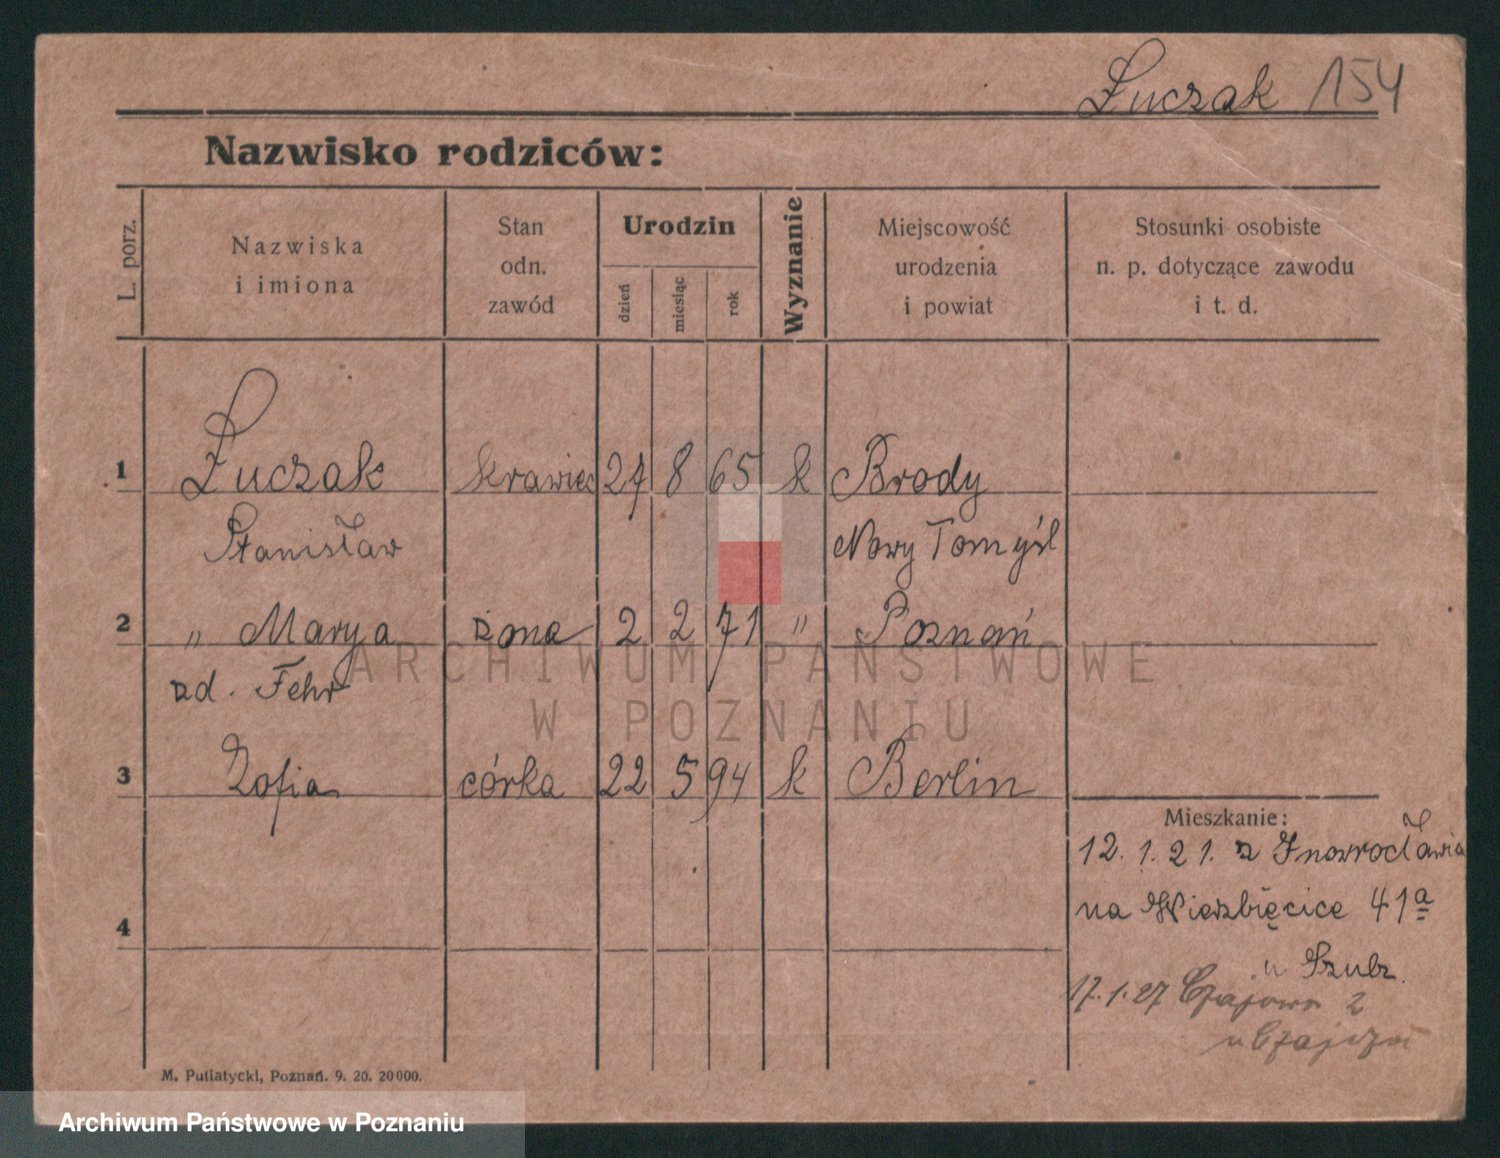 Łuczak 154
Nazwisko rodziców:
L. porz.
Nazwiska
i imiona
Stan
odn.
zawód
Urodzin
dzień
miesiąc
rok
Wyznanie
Miejscowość
urodzenia
i powiat
Stosunki osobiste
n. p. dotyczące zawodu
i t. d.
1 Łuczak krawiec 24 8 65 k Brody
Stanisław Nowy Tomyśl
2 " Marya żona 2 2 71 " Poznań
zd. Fehr
3 Zofia córka 22 5 94 k Berlin
Mieszkanie:
12. 1. 21. z Inowrocławia
na Wierzbięcice 41a
u Szulz.
4
17. 1. 27 Czajowa 2
u
M. Putiatycki, Poznań. 9. 20. 20000.
ARCHIWUM PAŃSTWOWE
W POZNANIU
Archiwum Państwowe w Poznaniu